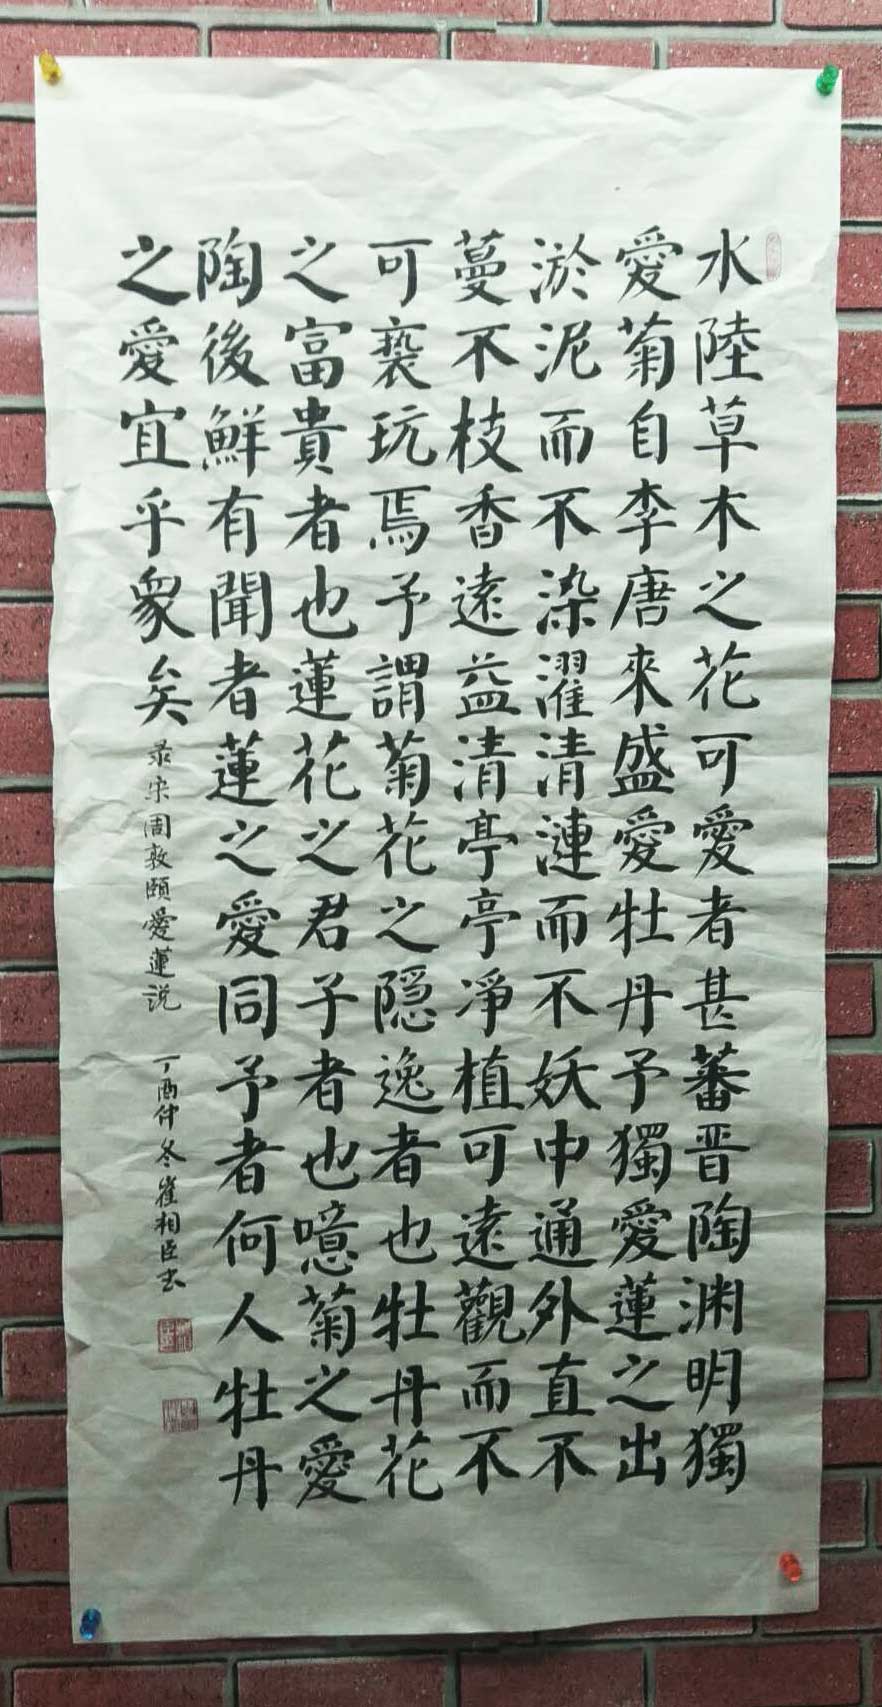 水陸草木之花可愛者甚蕃晋陶渊明獨
愛菊自李唐來盛愛牡丹予獨愛蓮之出
淤泥而不染濯清漣而不妖中通外直不
蔓不枝香遠益清亭亭凈植可遠觀而不
可褻玩焉予謂菊花之隠逸者也牡丹花
之富貴者也蓮花之君子者也噫菊之愛
陶後鮮有聞者蓮之愛同予者何人牡丹
之愛宜乎衆矣
录宋周敦頤愛蓮说
丁酉仲冬崔相臣书